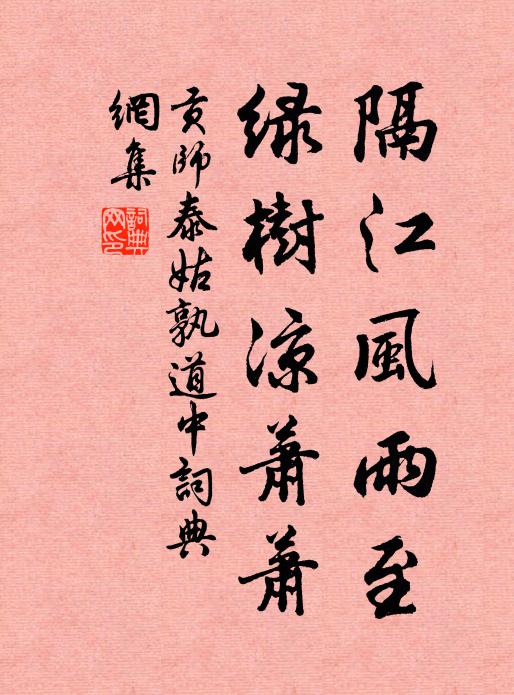 隔江風雨至
緑樹凉蕭蕭
貢師泰姑孰道中詞典
網集
詞典
网印